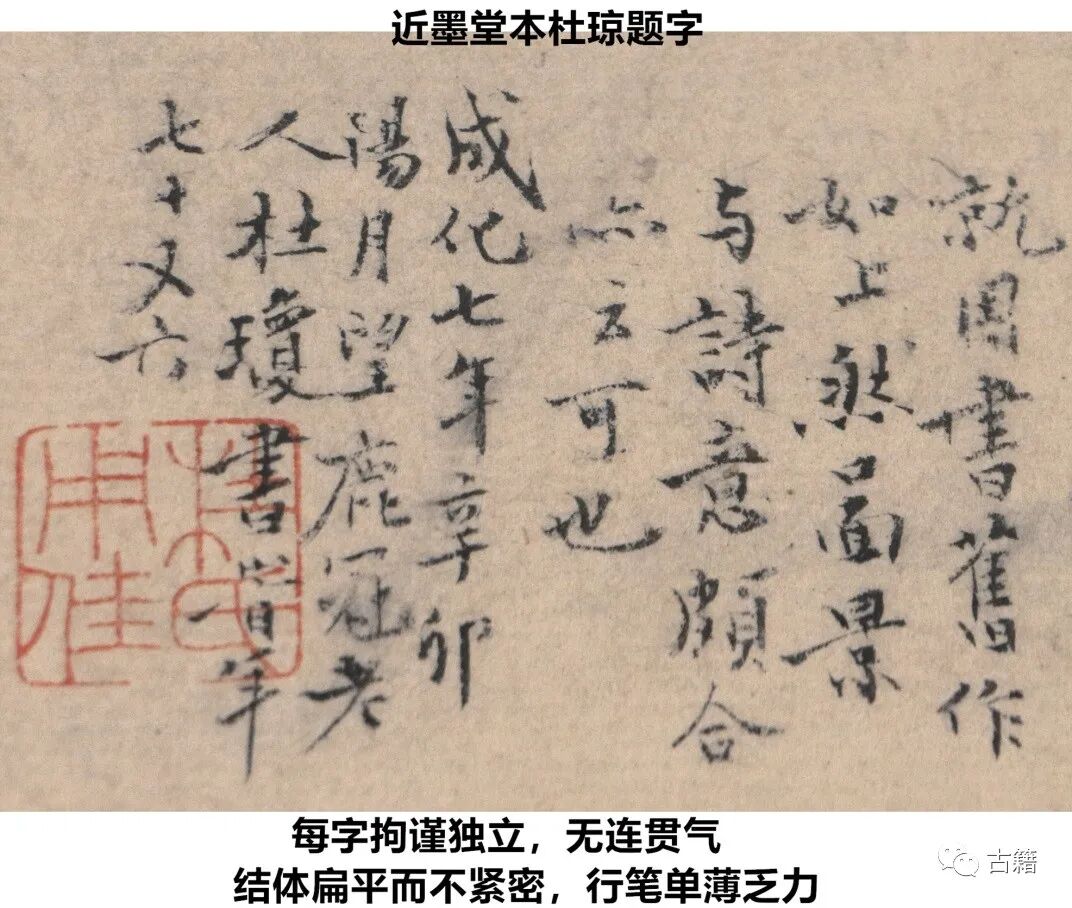 近墨堂本杜琼题字
就書舊作
如上然啚景
与詩意頗合
亦云可也
成化七年辛卯
陽月望鹿冠老
人杜瓊書旹年
七十又六
杜氏
用佳
每字拘谨独立，无连贯气
结体扁平而不紧密，行笔单薄乏力
古籍